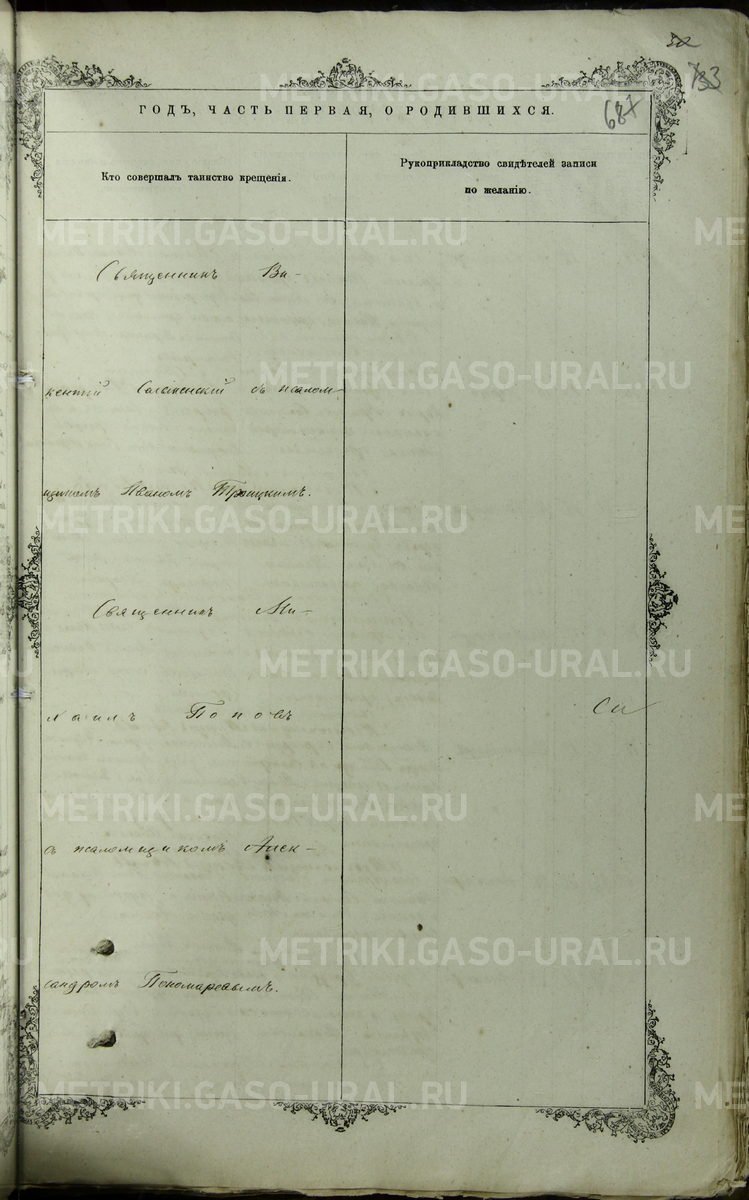 733
687
ГОДЪ, ЧАСТЬ ПЕРВАЯ, О РОДИВШИХСЯ.
Кто совершалъ таинство крещенія.
Рукоприкладство свидѣтелей записи
по желанію.
Священникъ Ви-
кентій съ псалом-
щикомъ Иваномъ Троицкимъ.
Священникъ Ми-
хаилъ Поповъ
съ псаломщикомъ Алек-
сандромъ Пономаревымъ.
METRIKI.GASO-URAL.RU